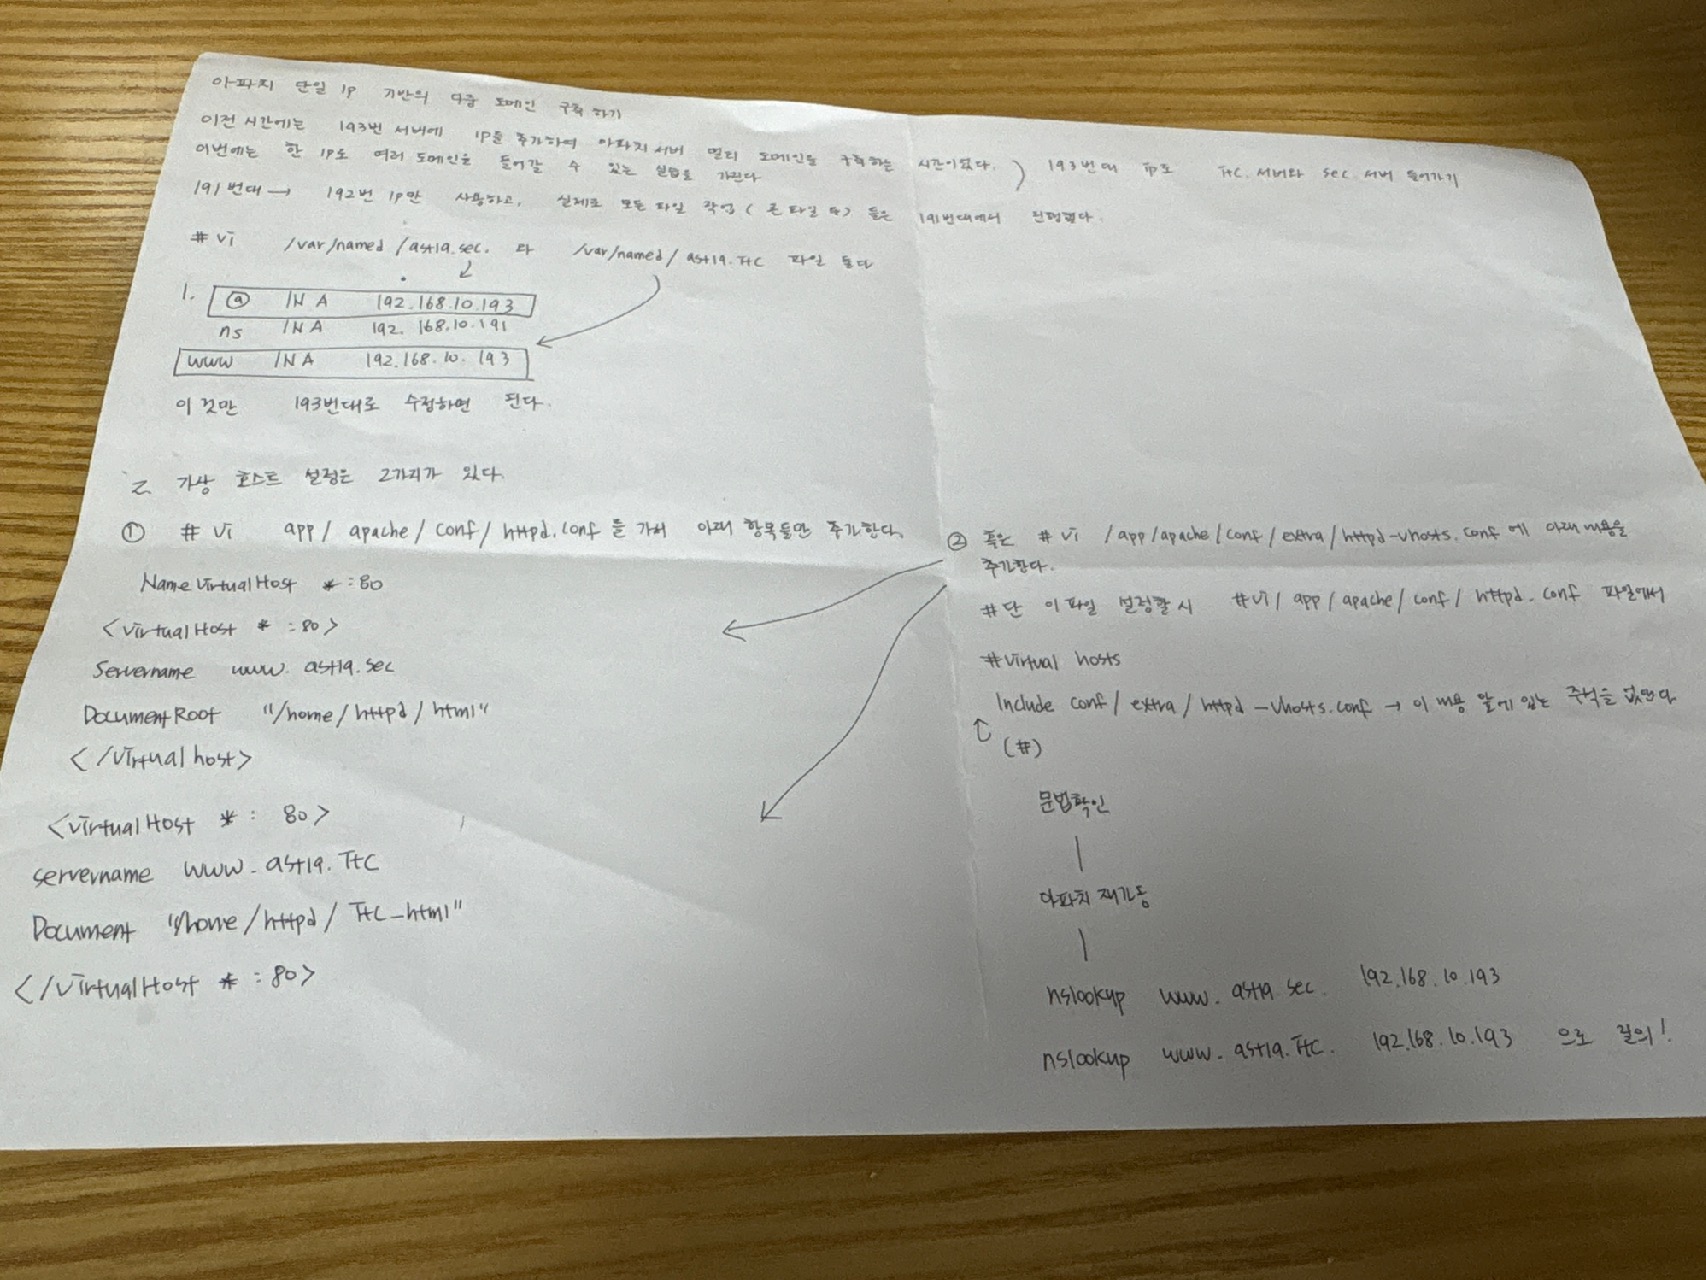 아파치 단일 IP 기반의 다중 도메인 구축 하기
이전 시간에는 193번 서버에 IP을 추가하여 아파치 서버 멀티 도메인을 구축하는 시간이었다.
이번에는 한 IP로 여러 도메인을 들어갈 수 있는 실습을 가진다
) 193번대 IP로 TtC. 서버와 sec 서버 들어가기
191번대 → 192번 IP만 사용하고, 실제로 모든 파일 작업( 존 파일 등) 들은 191번대에서 진행했다.
# vi /var/named/ast19.sec. 과 /var/named/ast19.TtC 파일 둘다
1. @ IN A 192.168.10.193
ns IN A 192.168.10.191
www IN A 192.168.10.193
이것만 193번대로 수정하면 된다.
2. 가상 호스트 설정은 2가지가 있다.
① # vi app/apache/conf/httpd.conf 를 가서 아래 항목들만 추가한다.
Name VirtualHost *:80
<VirtualHost * :80>
Servername www.ast19.sec
DocumentRoot "/home/httpd/html"
</Virtual host>
<VirtualHost * : 80>
servername www.ast19.TtC
Document "/home/httpd/TtC_html"
</VirtualHost * :80>
② 혹은 # vi /app/apache/conf/extra/httpd-vhosts.conf 에 아래 내용을
추가한다.
#단 이 파일 설정할 시 #vi/app/apache/conf/httpd.conf 파일에서
#Virtual hosts
Include conf/extra/httpd-vhosts.conf → 이 내용 앞에 있는 주석을 없앤다
(#)
문법확인
아파치 재가동
nslookup www.ast19.sec. 192.168.10.193
nslookup www.ast19.TtC. 192.168.10.193 으로 질의!